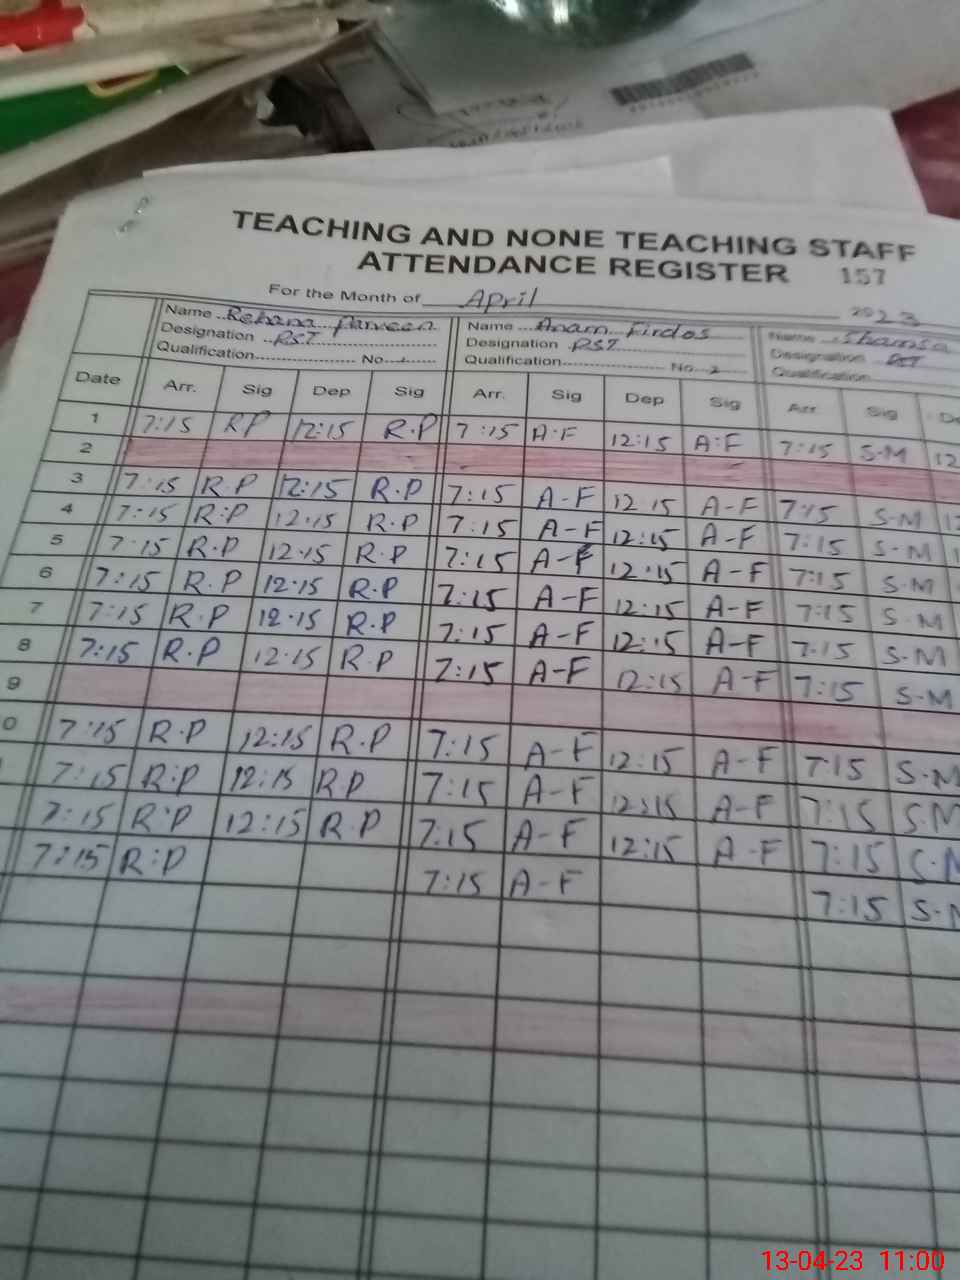 TEACHING AND NONE TEACHING STAFF
ATTENDANCE REGISTER 157
For the Month of April 2023
Name Rehana Parveen Name Anam Firdos Name Shamsa
Designation RST Designation RST Designation RST
Qualification No. 1 Qualification No. 2 Qualification
Date Arr. Sig Dep Sig Arr. Sig Dep Sig Arr Sig De
1 7:15 RP 12:15 R.P 7:15 A.F 12:15 A.F 7:15 S.M 12
2
3 7:15 R.P 12:15 R.P 7:15 A-F 12 15 A-F 7:15 S.M 12
4 7:15 R.P 12:15 R.P 7:15 A-F 12:15 A-F 7:15 S-M
5 7.15 R.P 12.15 R.P 7:15 A-F 12:15 A-F 7:15 S.M
6 7:15 R.P 12.15 R.P 7:15 A-F 12:15 A-F 7:15 S.M
7 7:15 R.P 12.15 R.P 7:15 A-F 12:15 A-F 7.15 S.M
8 7:15 R.P 12.15 R.P 7:15 A-F 12:15 A-F 7:15 S-M
9
0 7:15 R.P 12:15 R.P 7:15 A-F 12:15 A-F 7:15 S.M
7:15 R:P 12:15 R.P 7:15 A-F 12:15 A-F 7:15 S.M
7:15 R:P 12:15 R.P 7:15 A-F 12:15 A-F 7:15 S.M
7:15 R:P 7:15 A-F 7:15 S.M
13-04-23 11:00